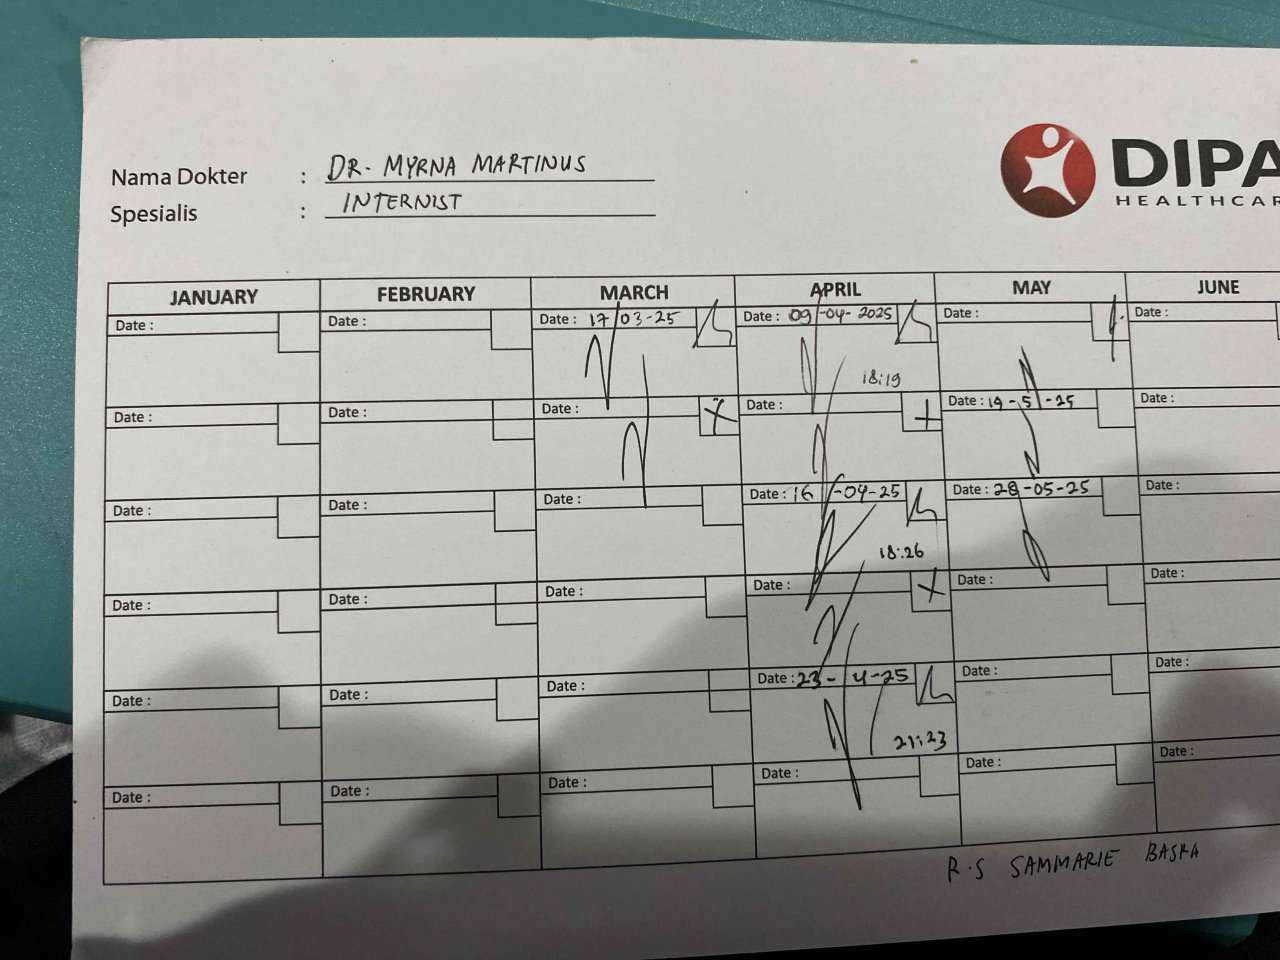 Nama Dokter : DR. MYRNA MARTINUS
Spesialis : INTERNIST
DIPA
HEALTHCAR
JANUARY FEBRUARY MARCH APRIL MAY JUNE
Date : Date : Date : 17/03-25 Date : 09-04-2025 Date : Date :
18:19
Date : Date : Date : Date : Date : 19-5-25 Date :
Date : Date : Date : Date : 16-04-25 Date : 28-05-25 Date :
18:26
Date : Date : Date : Date : Date : Date :
Date : Date : Date : Date : 23-4-25 Date : Date :
21:23
Date : Date : Date : Date : Date : Date :
R.S SAMMARIE BASRA